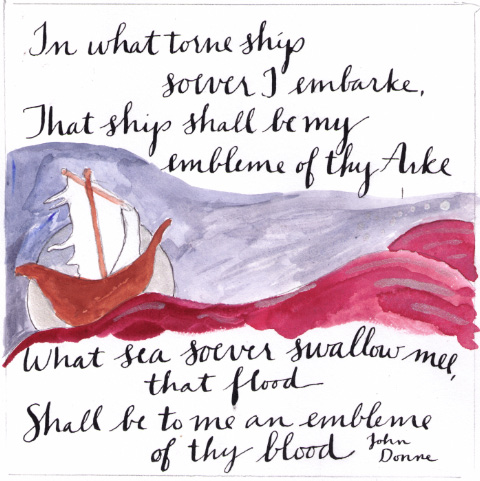 In what torne ship
soever I embarke,
That ship shall be my
embleme of thy Arke
What sea soever swallow mee,
that flood
Shall be to me an embleme
of thy blood
John
Donne